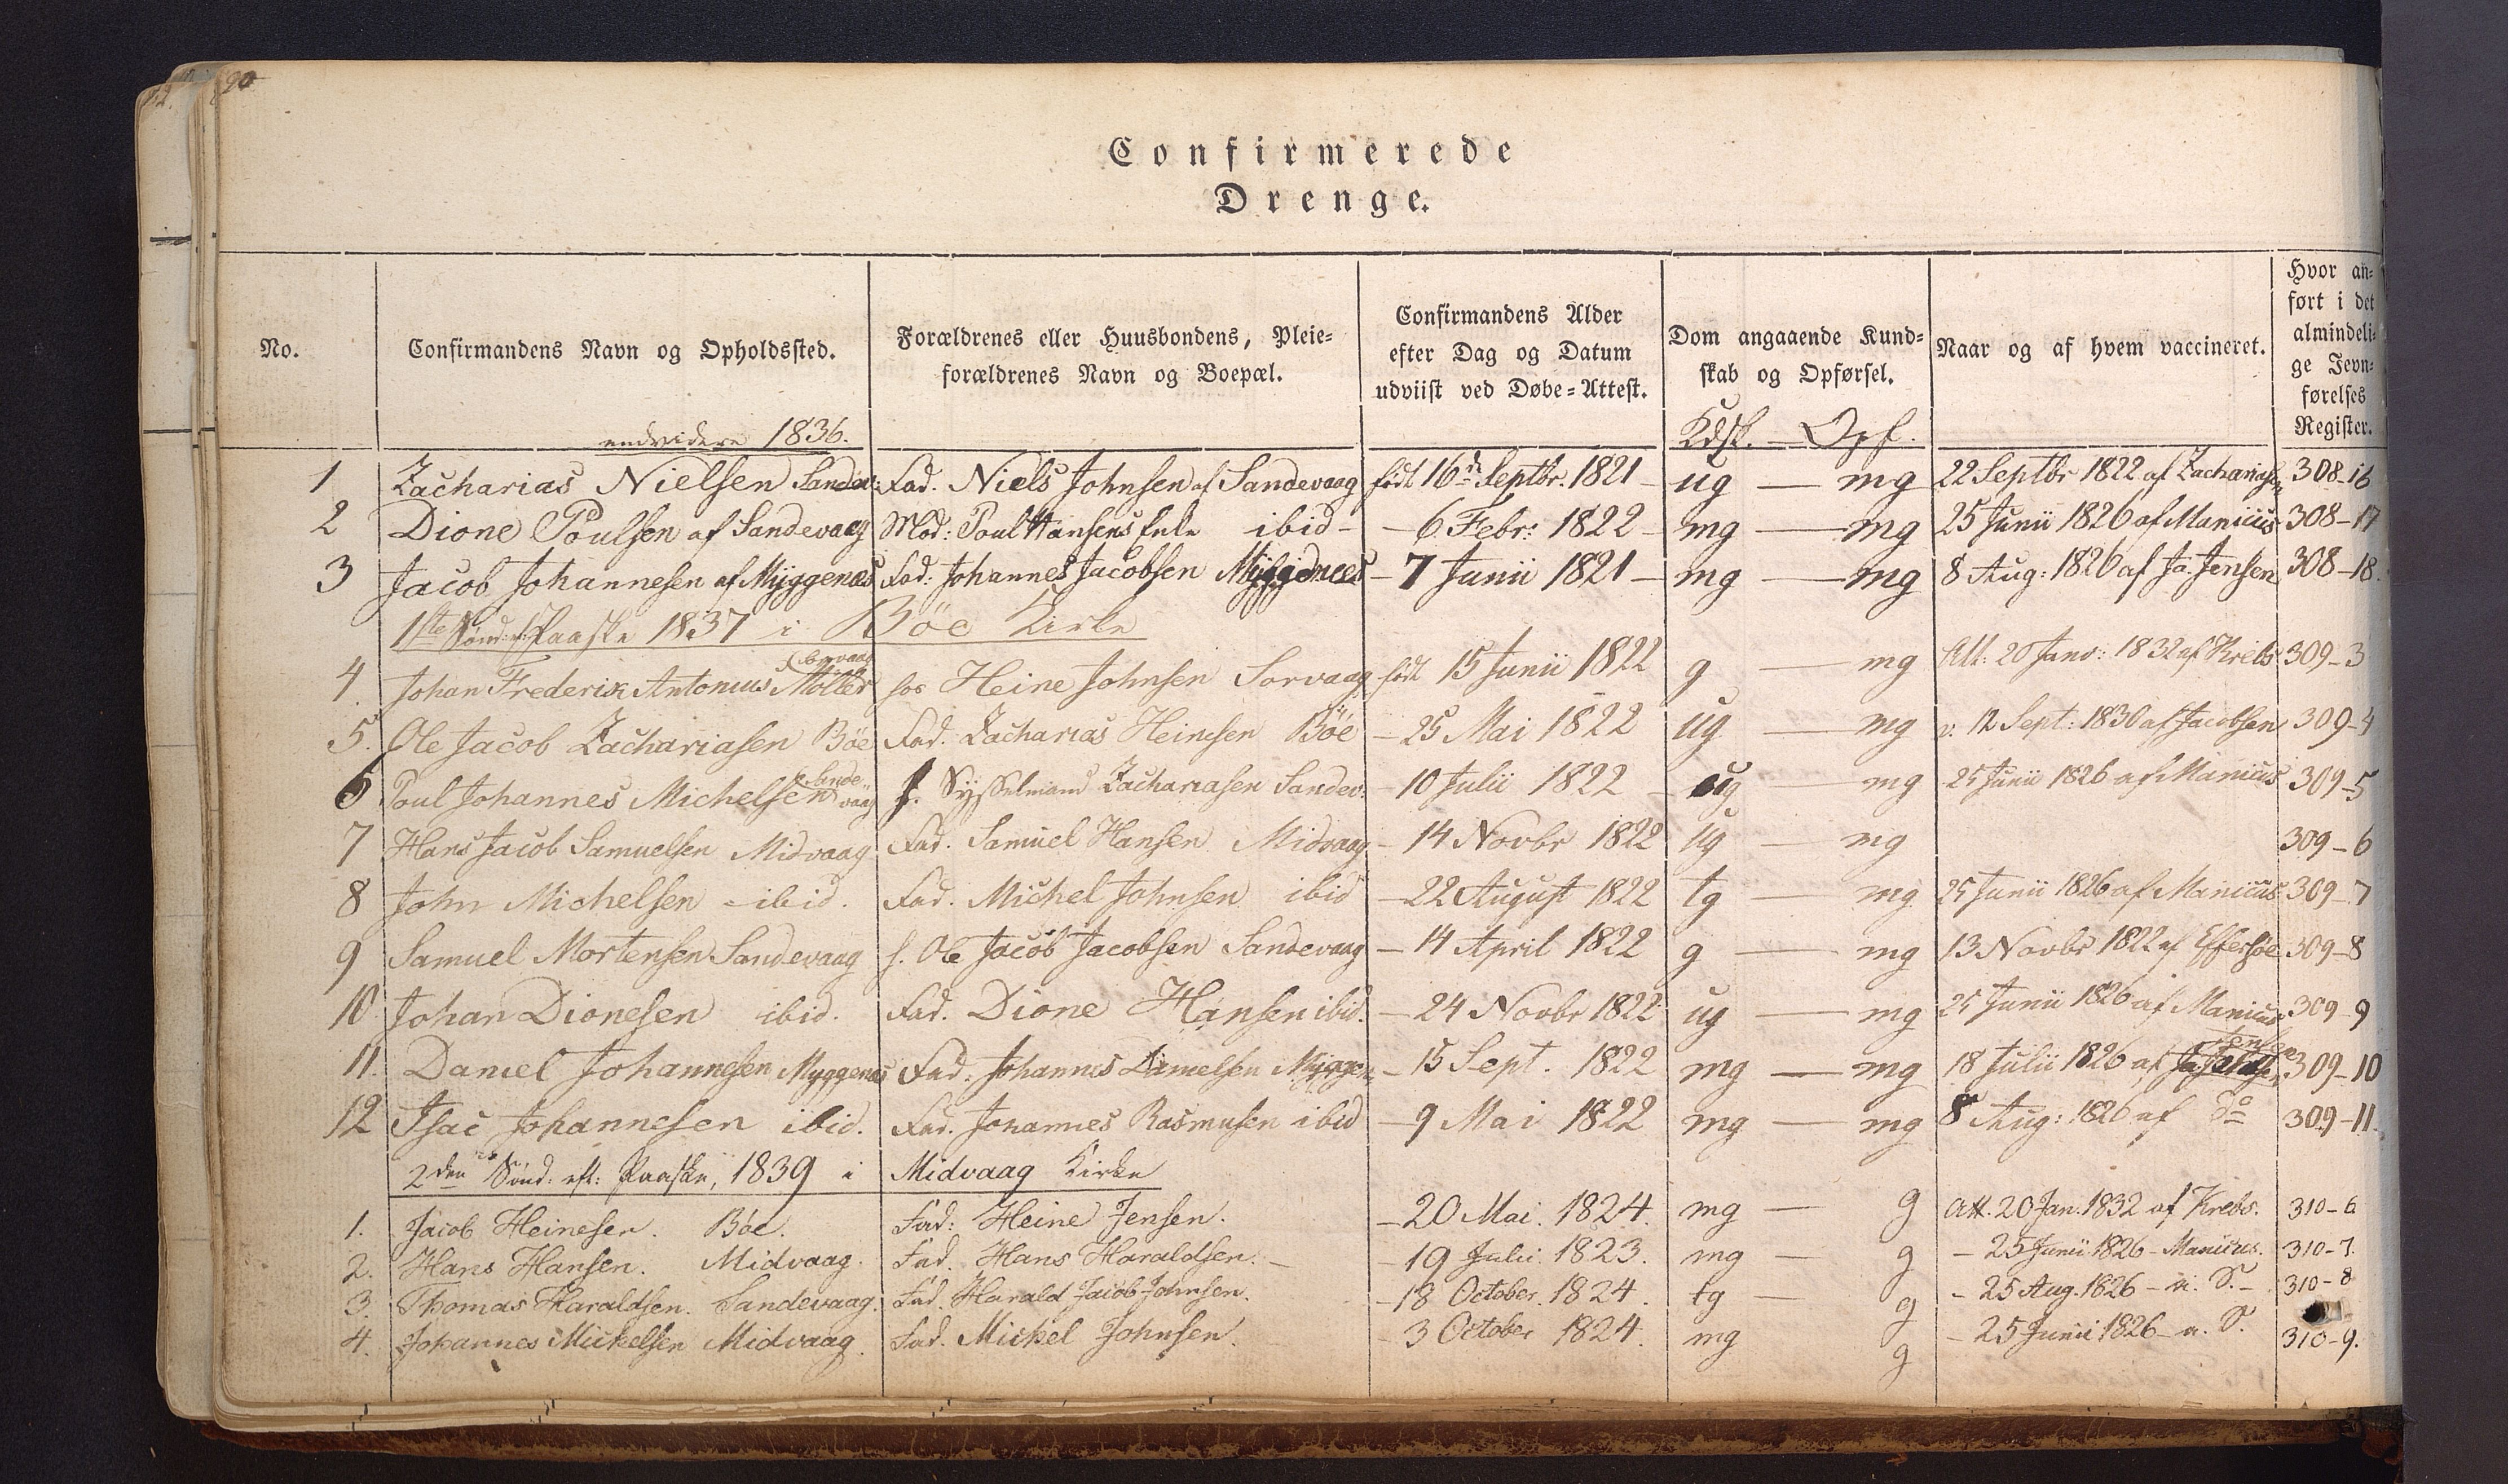 90
Confirmerede
Drenge.
No.
Confirmandens Navn og Opholdssted.
Forældrenes eller Huusbondens, Pleie=
forældrenes Navn og Boepæl.
Confirmandens Alder
efter Dag og Datum
udviist ved Døbe=Attest.
Dom angaaende Kund=
skab og Opførsel.
Naar og af hvem vaccineret.
Hvor an=
ført i det
almindeli=
ge Jevn=
førelses
Register.
Kdsk. — Opf.
endvidere 1836.
1 Zacharias Nielsen Sandev: Fad. Niels Johnsen af Sandevaag født 16de Septbr. 1821 — ug — mg 22 Septbr 1822 af Zachariasen 308-16
2 Dione Poulsen af Sandevaag Mod: Poul Hansens Enke ibid — 6 Febr: 1822 — mg — mg 25 Junii 1826 af Manicus 308-17
3 Jacob Johannesen af Myggenæs Fad: Johannes Jacobsen Myggenæs — 7 Junii 1821 — mg — mg 8 Aug: 1826 af Ja. Jensen 308-18.
1ste Sønd: ef: Paaske 1837 i Bøe Kirke
4. Johan Frederik Antonius Møller Sørvaag hos Heine Johnsen Sorvaag født 15 Junii 1822 g — mg Att: 20 Janv: 1832 af Krebs 309-3
5. Ole Jacob Zachariasen Bøe Fad. Zacharias Heinesen Bøe — 25 Mai 1822 ug — mg v. 12 Sept: 1830 af Jacobsen 309-4
6 Poul Johannes Michelsen Sandevaag f. Sysselmand Zachariasen Sandev: — 10 Julii 1822 — ug — mg 25 Junii 1826 af Manicus 309-5
7 Hans Jacob Samuelsen Midvaag Fad. Samuel Hansen Midvaag — 14 Novbr 1822 ug — mg 309-6
8 John Michelsen ibid. Fad. Michel Johnsen ibid — 22 August 1822 tg — mg 25 Junii 1826 af Manicus 309-7
9 Samuel Mortensen Sandevaag f. Ole Jacob Jacobsen Sandevaag — 14 April 1822 g — mg 13 Novbr 1822 af Effersøe 309-8
10 Johan Dionesen ibid. Fad. Dione Hansen ibid. — 24 Novbr 1822 ug — mg 25 Junii 1826 af Manicus 309-9
11. Daniel Johannesen Myggenæs Fad. Johannes Danielsen Myggen: — 15 Sept. 1822 mg — mg 18 Julii 1826 af Jensen 309-10
12 Isac Johannesen ibid. Fad. Johannes Rasmusen ibid — 9 Mai 1822 mg — mg 8 Aug: 1826 af Do 309-11.
2den Sønd. eft: Paaske, 1839 i Midvaag Kirke
1. Jacob Heinesen. Bøe. Fad: Heine Jensen. — 20 Mai. 1824. mg — g Att. 20 Jan. 1832 af Krebs. 310-6
2. Hans Hansen. Midvaag. Fad. Hans Haraldsen. — 19 Julii. 1823. mg — g — 25 Junii 1826 — Manicus. 310-7.
3. Thomas Haraldsen. Sandevaag. Fad. Harald Jacob Johnsen. — 18 October. 1824. tg — g — 25 Aug. 1826 — a. S. — 310-8
4. Johannes Mickelsen Midvaag. Fad. Mickel Johnsen. — 3 October 1824. mg g — 25 Junii 1826 — a. S. 310-9.